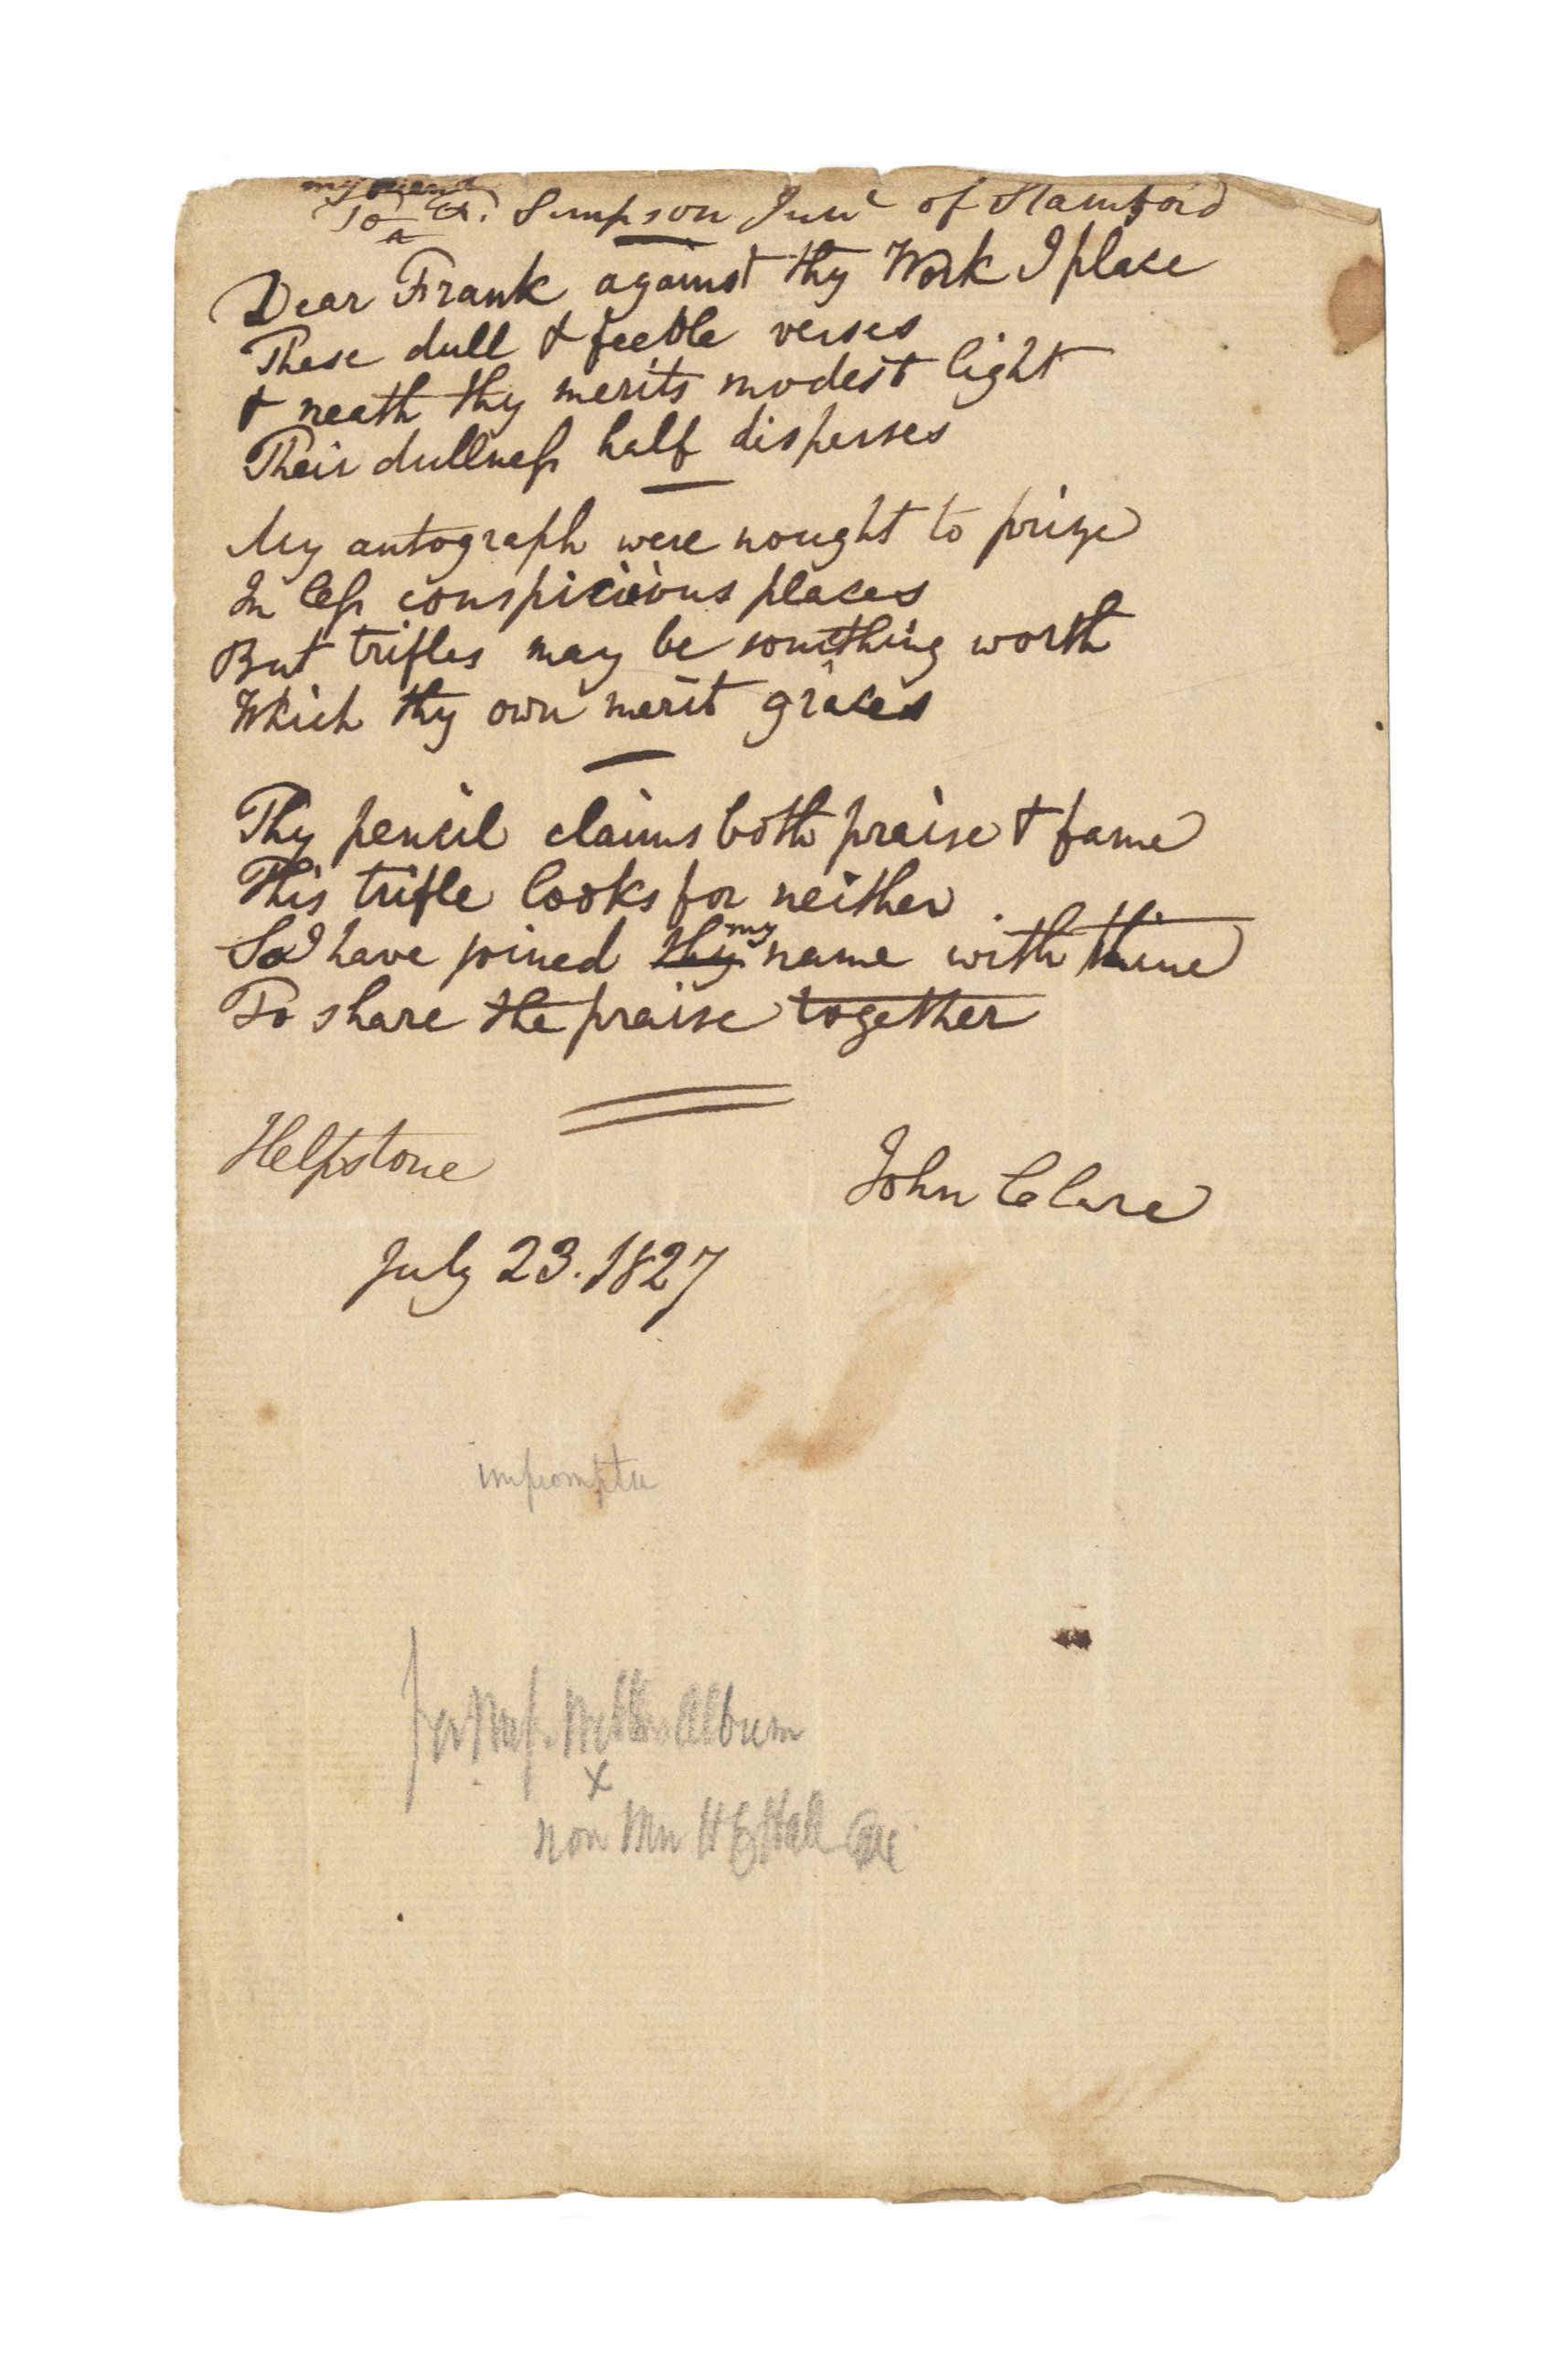 my friend
To F. Simpson Junr of Stamford
Dear Frank against thy Work I place
These dull & feeble verses
& neath thy merits modest light
Their dullness half disperses
My autograph were nought to prize
In less conspicious places
But trifles may be something worth
Which thy own merit graces
Thy pencil claims both praise & fame
This trifle looks for neither
So I have joined thy my name with thine
To share the praise together
Helpstone
John Clare
July 23. 1827
impromptu
for Album
Hall